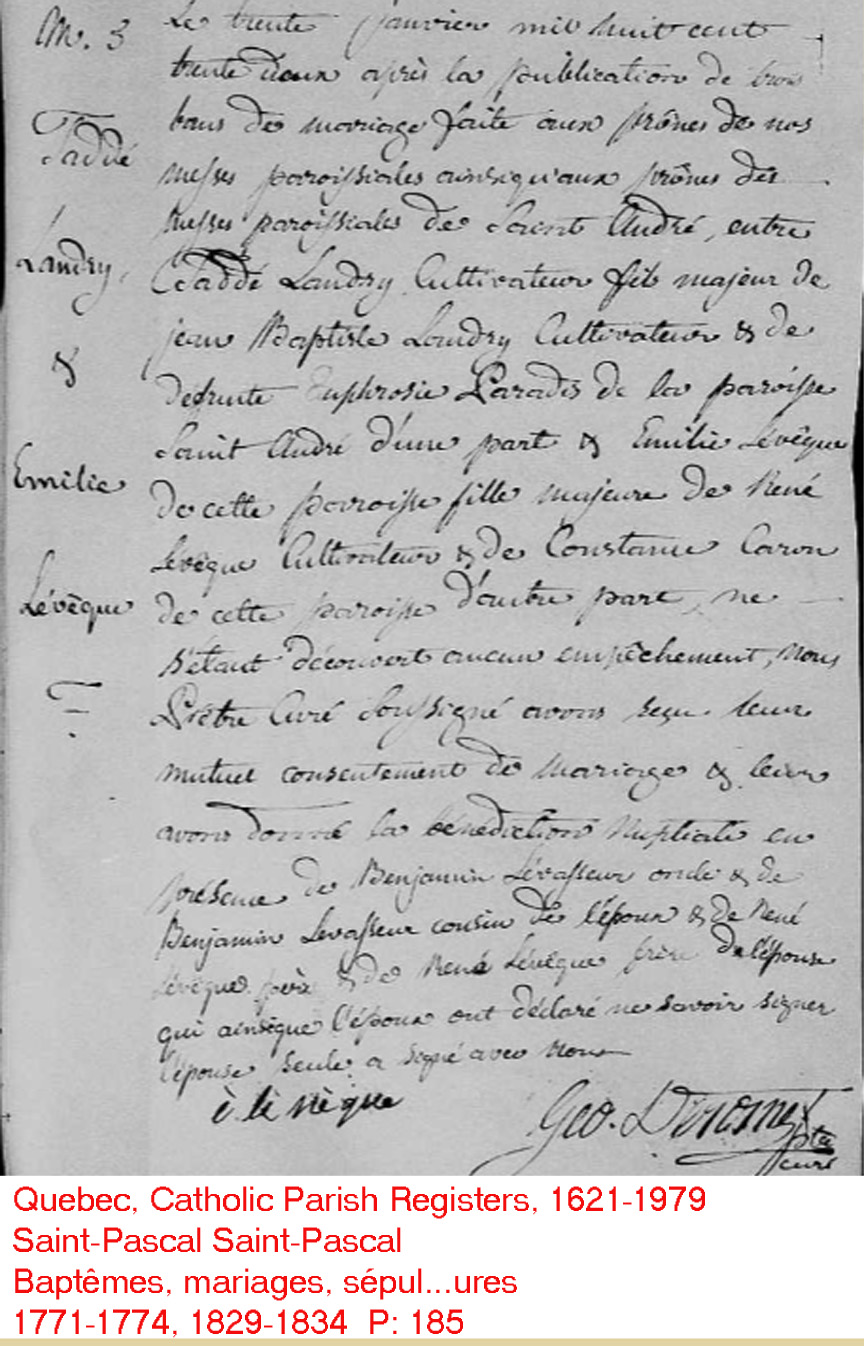 M. 3
Taddé
Landry,
&
Emilie
Lévêque
Le trente janvier mil huit cent
trente deux après la publication de trois
bans de mariage faite aux prônes de nos
messes paroissiales ainsiqu'aux prônes des
messes paroissiales de Saint André, entre
Taddé Landry Cultivateur fils majeur de
jean Baptiste Landry Cultivateur & de
defunte Euphrosie Paradis de la paroisse
Saint André d'une part & Emilie Lévêque
de cette paroisse fille majeure de René
Levêque Cultivateur & de Constance Caron
de cette paroisse d'autre part, ne
s'étant découvert aucun empêchement, Nous
Prêtre Curé Soussigné avons reçu leur
mutuel consentement de Mariage & leur
avons donné la bénédiction Nuptiale en
présence de Benjamin Lévasseur oncle & de
Benjamin Levasseur cousin de l'époux & de René
Lévêque père & de René Lévêque frère de l'épouse
qui ainsique l'époux ont déclaré ne savoir signer
l'épouse seule a signé avec Nous
Geo. Derome Ptre
curé
Quebec, Catholic Parish Registers, 1621-1979
Saint-Pascal Saint-Pascal
Baptêmes, mariages, sépul...ures
1771-1774, 1829-1834 P: 185